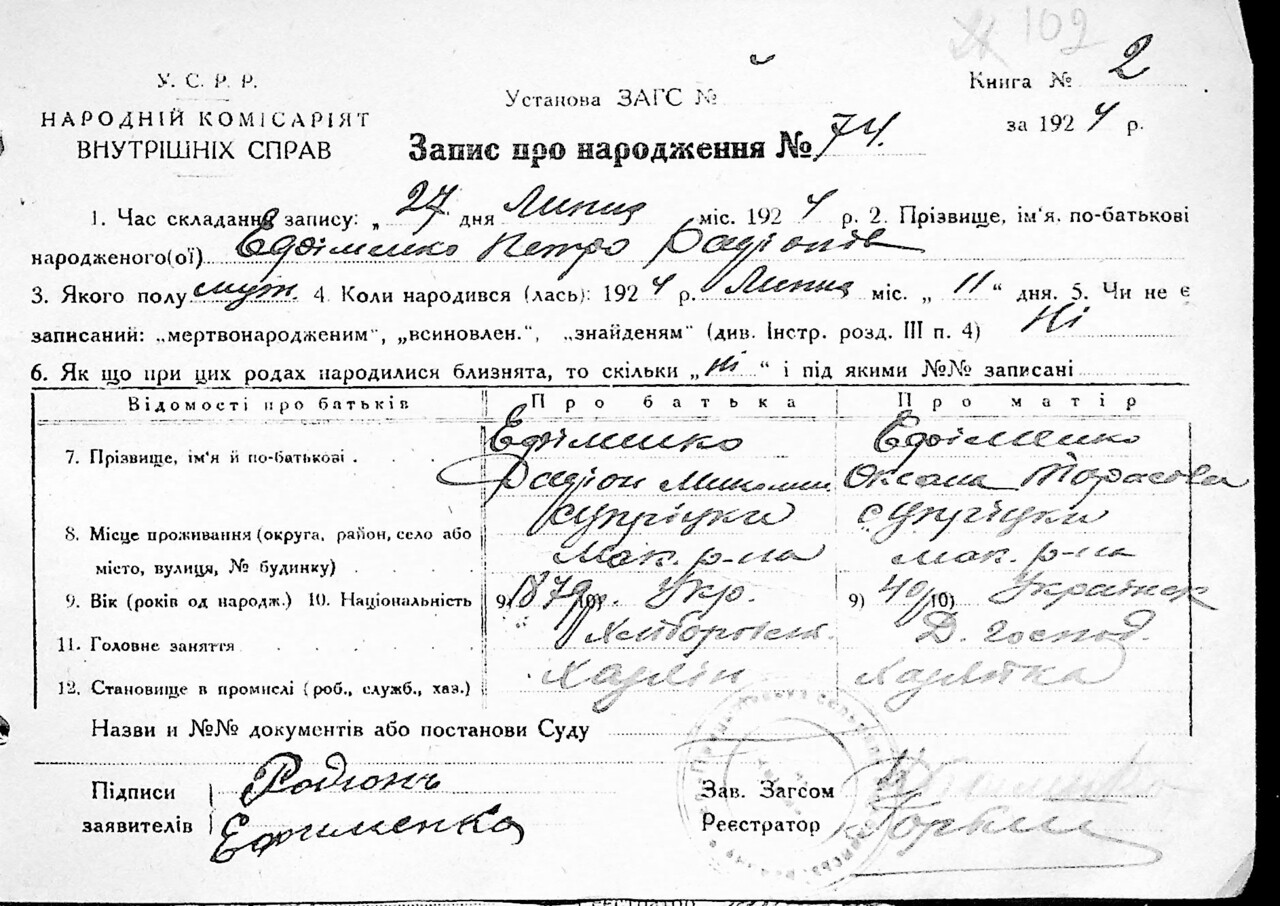 102
У. С. Р. Р.
НАРОДНІЙ КОМІСАРІЯТ
ВНУТРІШНІХ СПРАВ
Установа ЗАГС №
Книга № 2
за 1924 р.
Запис про народження № 74.
1. Час складання запису: „ 27 " дня Липня міс. 1924 р. 2. Прізвище, ім'я, по-батькові
народженого(ої) Ефіменко Петро Радіонів
3. Якого полу муж. 4. Коли народився (лась): 1924 р. Липня міс. „ 11 “ дня. 5. Чи не є
записаний: „мертвонародженим", „всиновлен.", „знайденям" (див. Інстр. розд. III п. 4) Ні
6. Як що при цих родах народилися близнята, то скільки „ Ні “ і під якими №№ записані
Відомості про батьків Про батька Про матір
Ефіменко Ефіменко
7. Прізвище, ім'я й по-батькові
Радіон Оксана Тарасова
8. Місце проживання (округа, район, село або
місто, вулиця, № будинку) Мак. р-на Мак. р-на
9. Вік (років од народж.) 10. Національність 9) 10) Укр. 9) 40 10)
11. Головне заняття Д. господ.
12. Становище в промислі (роб., служб., хаз.)
Назви и №№ документів або постанови Суду
Підписи Родіонъ
заявителів Ефименко
Зав. Загсом
Реєстратор